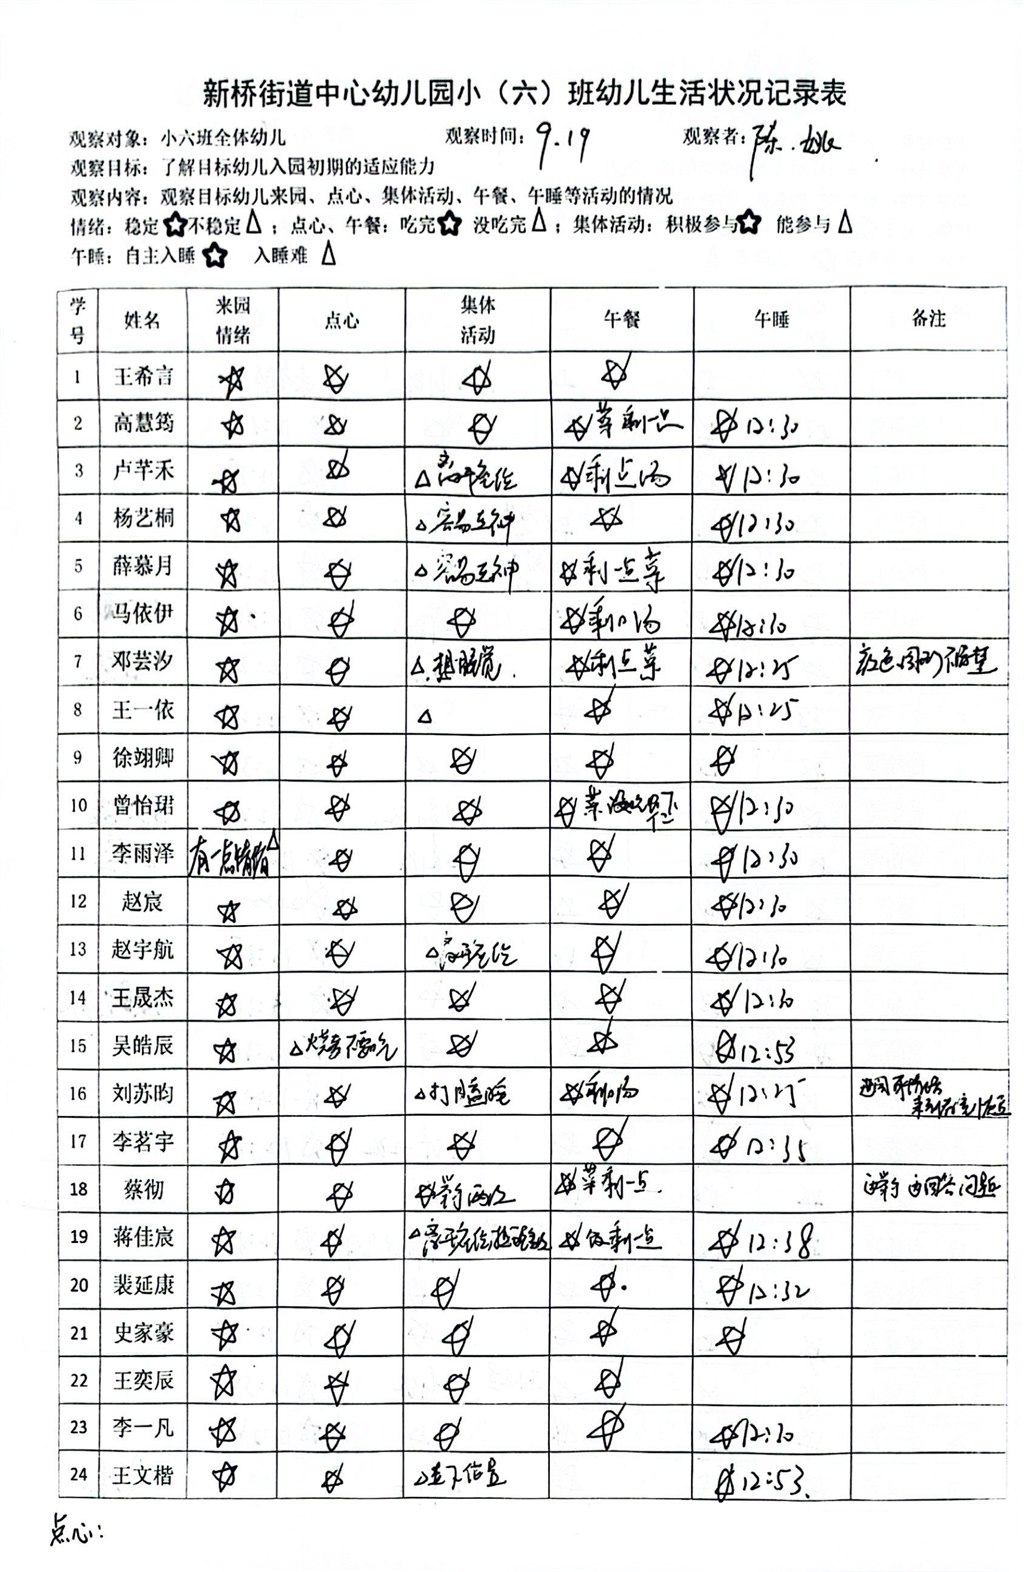 新桥街道中心幼儿园小（六）班幼儿生活状况记录表
观察对象：小六班全体幼儿 观察时间：9.19 观察者：陈.姚
观察目标：了解目标幼儿入园初期的适应能力
观察内容：观察目标幼儿来园、点心、集体活动、午餐、午睡等活动的情况
情绪：稳定☆不稳定△；点心、午餐：吃完☆ 没吃完△；集体活动：积极参与☆ 能参与△
午睡：自主入睡☆ 入睡难△
学号 姓名 来园情绪 点心 集体活动 午餐 午睡 备注
1 王希言 ☆ ☆ ☆ ☆
2 高慧筠 ☆ ☆ ☆ ☆菜剩一点 ☆12:30
3 卢芊禾 ☆ ☆ △离开座位 ☆剩点汤 ☆12:30
4 杨艺桐 ☆ ☆ △容易走神 ☆ ☆12:30
5 薛慕月 ☆ ☆ △容易走神 ☆剩一点菜 ☆12:30
6 马依伊 ☆ ☆ ☆ ☆剩口汤 ☆12:30
7 邓芸汐 ☆ ☆ △想睡觉 ☆剩点菜 ☆12:25
8 王一依 ☆ ☆ △ ☆ ☆12:25
9 徐翊卿 ☆ ☆ ☆ ☆ ☆
10 曾怡珺 ☆ ☆ ☆ ☆菜没吃 ☆12:30
11 李雨泽 有一点情绪△ ☆ ☆ ☆ ☆12:30
12 赵宸 ☆ ☆ ☆ ☆ ☆12:30
13 赵宇航 ☆ ☆ △离开座位 ☆ ☆12:30
14 王晟杰 ☆ ☆ ☆ ☆ ☆12:30
15 吴皓辰 ☆ △烧卖不要吃 ☆ ☆ ☆12:53
16 刘苏昀 ☆ ☆ △打瞌睡 ☆剩口汤 ☆12:25
17 李茗宇 ☆ ☆ ☆ ☆ ☆12:35
18 蔡彻 ☆ ☆ ☆举手两次 ☆菜剩一点 举手回答问题
19 蒋佳宸 ☆ ☆ △离开座位 ☆饭剩一点 ☆12:38
20 裴延康 ☆ ☆ ☆ ☆ ☆12:32
21 史家豪 ☆ ☆ ☆ ☆ ☆
22 王奕辰 ☆ ☆ ☆ ☆
23 李一凡 ☆ ☆ ☆ ☆ ☆12:30
24 王文楷 ☆ ☆ △ ☆12:53
点心：